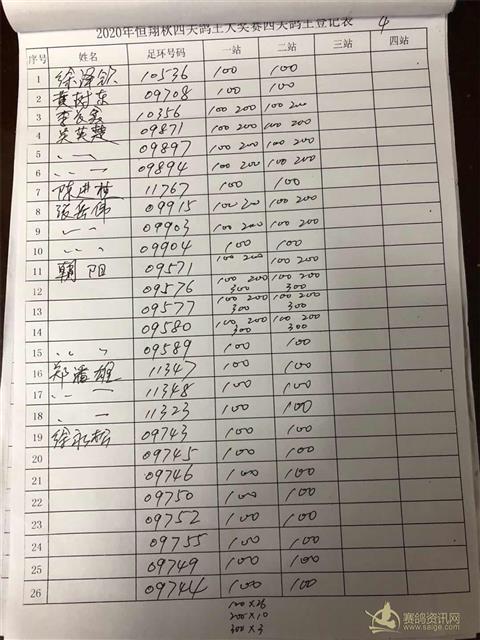 2020年恒翔秋四关鸽王大奖赛四关鸽王登记表 4
序号 姓名 足环号码 一站 二站 三站 四站
1 徐泽钦 10536 100 100
2 黄树东 09708 100 100
3 10356 100 200 100 200
4 吴英楚 09871 100 200 100 200
5 〃 〃 09897 100 200 100 200
6 〃 〃 09894 100 200 100 200
7 陈进 11767 100 100
8 张岳伟 09915 100 200 100 200
9 〃 〃 09903 100 200 100 200
10 〃 〃 09904 100 100
11 朝阳 09571 100 200 100 200
12 09576 100 200 300 100 200 300
13 09577 100 200 300 100 200 300
14 09580 100 200 300 100 200 300
15 〃 〃 09589 100 100
16 郑 雄 11347 100 100
17 〃 11348 100 100
18 〃 11323 100 100
19 徐永松 09743 100 100
20 09745 100 100
21 09746 100 100
22 09750 100 100
23 09752 100 100
24 09755 100 100
25 09749 100 100
26 09744 100 100
100×26
200×10
300×3
赛鸽资讯网
www.saige.com